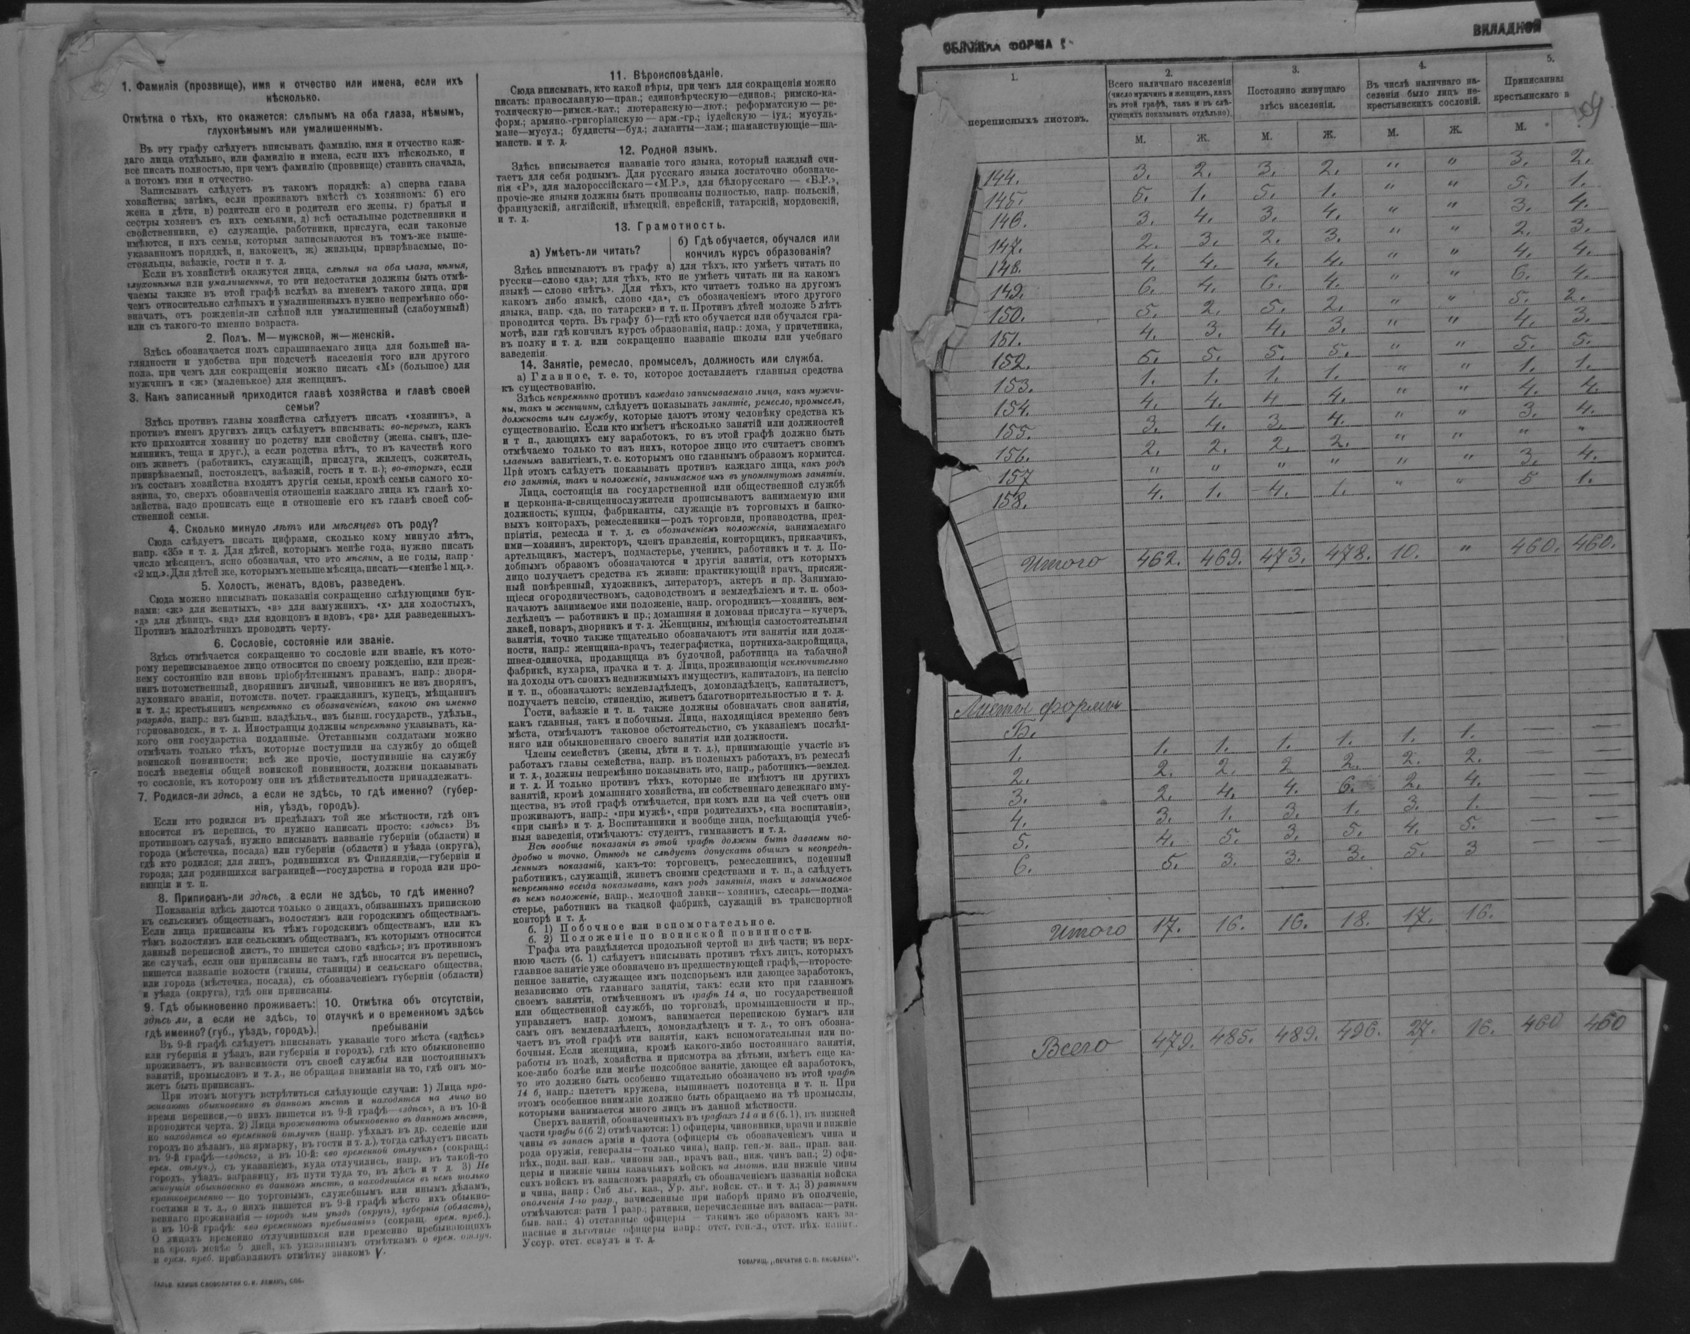 1. Фамилія (прозвище), имя и отчество или имена, если ихъ
нѣсколько.
Отмѣтка о тѣхъ, кто окажется: слѣпымъ на оба глаза, нѣмымъ,
глухонѣмымъ или умалишеннымъ.
Въ эту графу слѣдуетъ вписывать фамилію, имя и отчество каж-
даго лица отдѣльно, или фамилію и имена, если ихъ нѣсколько, и
все писать полностью, при чемъ фамилію (прозвище) ставить сначала,
а потомъ имя и отчество.
Записывать слѣдуетъ въ такомъ порядкѣ: а) сперва глава
хозяйства; затѣмъ, если проживаютъ вмѣстѣ съ хозяиномъ: б) его
жена и дѣти, в) родители его и родители его жены, г) братья и
сестры хозяевъ съ ихъ семьями, д) всѣ остальные родственники и
свойственники, е) служащіе, работники, прислуга, если таковые
имѣются, и ихъ семьи, которыя записываются въ томъ-же выше-
указанномъ порядкѣ, и, наконецъ, ж) жильцы, призрѣваемые, по-
стояльцы, заѣзжіе, гости и т. д.
Если въ хозяйствѣ окажутся лица, слѣпыя на оба глаза, нѣмыя,
глухонѣмыя или умалишенныя, то эти недостатки должны быть отмѣ-
чаемы также въ этой графѣ вслѣдъ за именемъ такого лица, при
чемъ относительно слѣпыхъ и умалишенныхъ нужно непремѣнно обо-
значать, отъ рожденія-ли слѣпой или умалишенный (слабоумный)
или съ такого-то именно возраста.
2. Полъ. М—мужской, ж—женскій.
Здѣсь обозначается полъ спрашиваемаго лица для большей на-
глядности и удобства при подсчетѣ населенія того или другого
пола, при чемъ для сокращенія можно писать «М» (большое) для
мужчинъ и «ж» (маленькое) для женщинъ.
3. Какъ записанный приходится главѣ хозяйства и главѣ своей
семьи?
Здѣсь противъ главы хозяйства слѣдуетъ писать «хозяинъ», а
противъ именъ другихъ лицъ слѣдуетъ вписывать: во-первыхъ, какъ
кто приходится хозяину по родству или свойству (жена, сынъ, пле-
мянникъ, теща и друг.), а если родства нѣтъ, то въ качествѣ кого
онъ живетъ (работникъ, служащій, прислуга, жилецъ, сожитель,
призрѣваемый, постоялецъ, заѣзжій, гость и т. п.); во-вторыхъ, если
въ составъ хозяйства входятъ другія семьи, кромѣ семьи самого хо-
зяина, то, сверхъ обозначенія отношенія каждаго лица къ главѣ хо-
зяйства, надо прописать еще и отношеніе его къ главѣ своей соб-
ственной семьи.
4. Сколько минуло лѣтъ или мѣсяцевъ отъ роду?
Сюда слѣдуетъ писать цифрами, сколько кому минуло лѣтъ,
напр. «35» и т. д. Для дѣтей, которымъ менѣе года, нужно писать
число мѣсяцевъ, ясно обозначая, что это мѣсяцы, а не годы, напр.
«2 мц.». Для дѣтей же, которымъ меньше мѣсяца, писать—«менѣе 1 мц.».
5. Холостъ, женатъ, вдовъ, разведенъ.
Сюда можно вписывать показанія сокращенно слѣдующими бук-
вами: «ж» для женатыхъ, «з» для замужнихъ, «х» для холостыхъ,
«д» для дѣвицъ, «вд» для вдовцовъ и вдовъ, «рз» для разведенныхъ.
Противъ малолѣтнихъ проводить черту.
6. Сословіе, состояніе или званіе.
Здѣсь отмѣчается сокращенно то сословіе или званіе, къ кото-
рому переписываемое лицо относится по своему рожденію, или преж-
нему состоянію или вновь пріобрѣтеннымъ правамъ, напр.: дворя-
нинъ потомственный, дворянинъ личный, чиновникъ не изъ дворянъ,
духовнаго званія, потомств. почет. гражданинъ, купецъ, мѣщанинъ
и т. д.; крестьянинъ непремѣнно съ обозначеніемъ, какого онъ именно
разряда, напр.: изъ бывш. владѣльч., изъ бывш. государств., удѣльн.,
горнозаводск., и т. д. Иностранцы должны непремѣнно указывать, ка-
кого они государства подданные. Отставными солдатами можно
отмѣчать только тѣхъ, которые поступили на службу до общей
воинской повинности; всѣ же прочіе, поступившіе на службу
послѣ введенія общей воинской повинности, должны показывать
то сословіе, къ которому они въ дѣйствительности принадлежатъ.
7. Родился-ли здѣсь, а если не здѣсь, то гдѣ именно? (губер-
нія, уѣздъ, городъ).
Если кто родился въ предѣлахъ той же мѣстности, гдѣ онъ
вносится въ перепись, то нужно написать просто: «здѣсь» Въ
противномъ случаѣ, нужно вписывать названіе губерніи (области) и
города (мѣстечка, посада) или губерніи (области) и уѣзда (округа),
гдѣ кто родился; для лицъ, родившихся въ Финляндіи,—губерніи и
города; для родившихся заграницей—государства и города или про-
винціи и т. п.
8. Приписанъ-ли здѣсь, а если не здѣсь, то гдѣ именно?
Показанія здѣсь даются только о лицахъ, обязанныхъ припискою
къ сельскимъ обществамъ, волостямъ или городскимъ обществамъ.
Если лица приписаны къ тѣмъ городскимъ обществамъ, или къ
тѣмъ волостямъ или сельскимъ обществамъ, къ которымъ относится
данный переписной листъ, то пишется слово «здѣсь»; въ противномъ
же случаѣ, если они приписаны не тамъ, гдѣ вносятся въ перепись,
пишется названіе волости (гмины, станицы) и сельскаго общества,
или города (мѣстечка, посада), съ обозначеніемъ губерніи (области)
и уѣзда (округа), гдѣ они приписаны.
9. Гдѣ обыкновенно проживаетъ:
здѣсь ли, а если не здѣсь, то
гдѣ именно? (губ., уѣздъ, городъ).
10. Отмѣтка объ отсутствіи,
отлучкѣ и о временномъ здѣсь
пребываніи
Въ 9-й графѣ слѣдуетъ вписывать указаніе того мѣста («здѣсь»
или губернія и уѣздъ, или губернія и городъ), гдѣ кто обыкновенно
проживаетъ, въ зависимости отъ своей службы или постоянныхъ
занятій, промысловъ и т. д., не обращая вниманія на то, гдѣ онъ мо-
жетъ быть приписанъ.
При этомъ могутъ встрѣтиться слѣдующіе случаи: 1) Лица про-
живаютъ обыкновенно въ данномъ мѣстѣ и находятся на лицо во
время переписи,—о нихъ пишется въ 9-й графѣ—«здѣсь», а въ 10-й
проводится черта. 2) Лица проживаютъ обыкновенно въ данномъ мѣстѣ,
но находятся во временной отлучкѣ (напр. уѣхалъ въ др. селеніе или
городъ по дѣламъ, на ярмарку, въ гости и т. д.), тогда слѣдуетъ писать
въ 9-й графѣ—«здѣсь», а въ 10-й: «во временной отлучкѣ» (сокращ.:
врем. отлуч.), съ указаніемъ, куда отлучились, напр. въ такой-то
городъ, уѣздъ, заграницу, въ пути туда то, въ лѣсъ и т. д. 3) Не
живущія обыкновенно въ данномъ мѣстѣ, а находящіяся въ немъ только
кратковременно — по торговымъ, служебнымъ или инымъ дѣламъ,
гостями и т. д., о нихъ пишется въ 9-й графѣ мѣсто ихъ обыкно-
веннаго проживанія—городъ или уѣздъ (округъ), губернія (область),
а въ 10-й графѣ: «во временномъ пребываніи» (сокращ. врем. преб.).
О лицахъ временно отлучившихся или временно пребывающихъ
на срокъ менѣе 5 дней, къ указаннымъ отмѣткамъ о врем. отлуч.
и врем. преб. прибавляютъ отмѣтку знакомъ V.
11. Вѣроисповѣданіе.
Сюда вписывать, кто какой вѣры, при чемъ для сокращенія можно
писать: православную—прав.; единовѣрческую—единов.; римско-ка-
толическую—римск.-кат.; лютеранскую—лют.; реформатскую — ре-
форм.; армяно.-григоріанскую — арм.-гр.; іудейскую — іуд.; мусуль-
манс—мусул.; буддисты—буд.; ламаиты—лам.; шаманствующіе—ша-
манств. и т. д.
12. Родной языкъ.
Здѣсь вписывается названіе того языка, который каждый счи-
таетъ для себя роднымъ. Для русскаго языка достаточно обозначе-
нія «Р», для малороссійскаго—«М.Р.», для бѣлорусскаго — «Б.Р.»,
прочіе-же языки должны быть прописаны полностью, напр. польскій,
французскій, англійскій, нѣмецкій, еврейскій, татарскій, мордовскій,
и т. д.
13. Грамотность.
а) Умѣетъ-ли читать?
б) Гдѣ обучается, обучался или
кончилъ курсъ образованія?
Здѣсь вписываютъ въ графу а) для тѣхъ, кто умѣетъ читать по
русски—слово «да»; для тѣхъ, кто не умѣетъ читать ни на какомъ
языкѣ — слово «нѣтъ». Для тѣхъ, кто читаетъ только на другомъ
какомъ либо языкѣ, слово «да», съ обозначеніемъ этого другого
языка, напр. «да, по татарски» и т. п. Противъ дѣтей моложе 5 лѣтъ
проводится черта. Въ графу б)—гдѣ кто обучается или обучался гра-
мотѣ, или гдѣ кончилъ курсъ образованія, напр.: дома, у причетника,
въ полку и т. д. или сокращенно названіе школы или учебнаго
заведенія.
14. Занятіе, ремесло, промыселъ, должность или служба.
а) Главное, т. е. то, которое доставляетъ главныя средства
къ существованію.
Здѣсь непремѣнно противъ каждаго записываемаго лица, какъ мужчи-
ны, такъ и женщины, слѣдуетъ показывать занятіе, ремесло, промыселъ,
должность или службу, которые даютъ этому человѣку средства къ
существованію. Если кто имѣетъ нѣсколько занятій или должностей
и т п., дающихъ ему заработокъ, то въ этой графѣ должно быть
отмѣчаемо только то изъ нихъ, которое лицо это считаетъ своимъ
главнымъ занятіемъ, т. е. которымъ оно главнымъ образомъ кормится.
При этомъ слѣдуетъ показывать противъ каждаго лица, какъ родъ
его занятія, такъ и положеніе, занимаемое имъ въ упомянутомъ занятіи.
Лица, состоящія на государственной или общественной службѣ
и церковно-и-священнослужители прописываютъ занимаемую ими
должность; купцы, фабриканты, служащіе въ торговыхъ и банко-
выхъ конторахъ, ремесленники—родъ торговли, производства, пред-
пріятія, ремесла и т. д. съ обозначеніемъ положенія, занимаемаго
ими—хозяинъ, директоръ, членъ правленія, конторщикъ, приказчикъ,
артельщикъ, мастеръ, подмастерье, ученикъ, работникъ и т. д. По-
добнымъ образомъ обозначаются и другія занятія, отъ которыхъ
лицо получаетъ средства къ жизни: практикующій врачъ, присяж-
ный повѣренный, художникъ, литераторъ, актеръ и пр. Занимаю-
щіеся огородничествомъ, садоводствомъ и земледѣліемъ и т. п. обоз-
начаютъ занимаемое ими положеніе, напр. огородникъ—хозяинъ, зем-
ледѣлецъ — работникъ и пр.; домашняя и домовая прислуга—кучеръ,
лакей, поваръ, дворникъ и т. д. Женщины, имѣющія самостоятельныя
занятія, точно также тщательно обозначаютъ эти занятія или долж-
ности, напр.: женщина-врачъ, телеграфистка, портниха-закройщица,
швея-одиночка, продавщица въ булочной, работница на табачной
фабрикѣ, кухарка, прачка и т. д. Лица, проживающія исключительно
на доходы отъ своихъ недвижимыхъ имуществъ, капиталовъ, на пенсію
и т. п., обозначаютъ: землевладѣлецъ, домовладѣлецъ, капиталистъ,
получаетъ пенсію, стипендію, живетъ благотворительностью и т. д.
Гости, заѣзжіе и т. п. также должны обозначать свои занятія,
какъ главныя, такъ и побочныя. Лица, находящіяся временно безъ
мѣста, отмѣчаютъ таковое обстоятельство, съ указаніемъ послѣд-
няго или обыкновеннаго своего занятія или должности.
Члены семействъ (жены, дѣти и т. д.), принимающіе участіе въ
работахъ главы семейства, напр. въ полевыхъ работахъ, въ ремеслѣ
и т. д., должны непремѣнно показывать это, напр., работникъ—землед.
и т. д. И только противъ тѣхъ, которые не имѣютъ ни другихъ
занятій, кромѣ домашняго хозяйства, ни собственнаго денежнаго иму-
щества, въ этой графѣ отмѣчается, при комъ или на чей счетъ они
проживаютъ, напр.: «при мужѣ», «при родителяхъ», «на воспитаніи»,
«при сынѣ» и т. д. Воспитанники и вообще лица, посѣщающія учеб-
ныя заведенія, отмѣчаютъ: студентъ, гимназистъ и т. д.
Всѣ вообще показанія въ этой графѣ должны быть даваемы по-
дробно и точно. Отнюдь не слѣдуетъ допускать общихъ и неопредѣ-
ленныхъ показаній, какъ-то: торговецъ, ремесленникъ, поденный
работникъ, служащій, живетъ своими средствами и т. п., а слѣдуетъ
непремѣнно всегда показывать, какъ родъ занятія, такъ и занимаемое
въ немъ положеніе, напр., мелочной лавки—хозяинъ, слесарь—подма-
стерье, работникъ на ткацкой фабрикѣ, служащій въ транспортной
конторѣ и т. д.
б. 1) Побочное или вспомогательное.
б. 2) Положеніе по воинской повинности.
Графа эта раздѣляется продольной чертой на двѣ части; въ верх-
нюю часть (б. 1) слѣдуетъ вписывать противъ тѣхъ лицъ, которыхъ
главное занятіе уже обозначено въ предшествующей графѣ,—второсте-
пенное занятіе, служащее имъ подспорьемъ или дающее заработокъ,
независимо отъ главнаго занятія, такъ: если кто при главномъ
своемъ занятіи, отмѣченномъ въ графѣ 14 а, по государственной
или общественной службѣ, по торговлѣ, промышленности и пр.,
управляетъ напр. домомъ, занимается перепискою бумагъ или
самъ онъ землевладѣлецъ, домовладѣлецъ и т. д., то онъ обозна-
чаетъ въ этой графѣ эти занятія, какъ вспомогательныя или по-
бочныя. Если женщина, кромѣ какого-либо постояннаго занятія,
работы въ полѣ, хозяйства и присмотра за дѣтьми, имѣетъ еще ка-
кое-либо болѣе или менѣе подсобное занятіе, дающее ей заработокъ,
то это должно быть особенно тщательно обозначено въ этой графѣ
14 б, напр.: плететъ кружева, вышиваетъ полотенца и т. п. При
этомъ особенное вниманіе должно быть обращаемо на тѣ промыслы,
которыми занимается много лицъ въ данной мѣстности.
Сверхъ занятій, обозначенныхъ въ графахъ 14 а и б (б. 1), въ нижней
части графы б (б 2) отмѣчаются: 1) офицеры, чиновники, врачи и нижніе
чины въ запасѣ арміи и флота (офицеры съ обозначеніемъ чина и
рода оружія, генералы—только чина), напр. ген.-м. зап., прап. зап.
пѣх., подп. зап. кав.. чиновн зап., врачъ зап., ниж. чинъ зап.; 2) офи-
церы и нижніе чины казачьихъ войскъ на льготѣ, или нижніе чины
сихъ войскъ въ запасномъ разрядѣ, съ обозначеніемъ названія войска
и чина, напр: Сиб льг. каз., Ур. льг. войск. ст.. и т. д.; 3) ратники
ополченія 1-го разр., зачисленные при наборѣ прямо въ ополченіе,
отмѣчаются: ратн. 1 разр.; ратники, перечисленные изъ запаса:—ратн.
быв. зап.; 4) отставные офицеры — такимъ же образомъ какъ за-
пасные и льготные офицеры напр.: отст. ген.-л., отст. пѣх. капит.,
Уссур. отст. есаулъ и т. д.
ТОВАРИЩ. „ПЕЧАТНЯ С. П. ЯКОВЛЕВА".
ОБЛОЖКА ФОРМА
ВКЛАДНОЙ
1. 2. 3. 4. 5.
переписныхъ листовъ.
Всего наличнаго населенія
(число мужчинъ и женщинъ, какъ
въ этой графѣ, такъ и въ слѣ-
дующихъ показывать отдѣльно).
Постоянно живущаго
здѣсь населенія.
Въ числѣ наличнаго на-
селенія было лицъ не-
крестьянскихъ сословій.
Приписаннаг
крестьянскаго н
М. Ж. М. Ж. М. Ж. М.
144. 3. 2. 3. 2. " " 3. 2.
145. 5. 1. 5. 1. " " 5. 1.
146. 3. 4. 3. 4. " " 3. 4.
147. 2. 3. 2. 3. " " 2. 3.
148. 4. 4. 4. 4. " " 4. 4.
149. 6. 4. 6. 4. " " 6. 4.
150. 5. 2. 5. 2. " " 5. 2.
151. 4. 3. 4. 3. " " 4. 3.
152. 5. 5. 5. 5. " " 5. 5.
153. 1. 1. 1. 1. " " 1. 1.
154. 4. 4. 4 4. " " 4. 4.
155. 3. 4. 3. 4. " " 3. 4.
156. 2. 2. 2. 2. " " " "
157 " " " " " " 3. 4.
158. 4. 1. 4. 1. " " 5 1.
Итого 462. 469. 473. 478. 10. " 460. 460.
Листы формы
Б.
1. 1. 1. 1. 1. 1. 1. — —
2. 2. 2. 2 2. 2. 2. — —
3. 2. 4. 4. 6. 2. 4. — —
4. 3. 1. 3. 1. 3. 1. — —
5. 4. 5. 3. 5. 4. 5. — —
6. 5. 3. 3. 3. 5. 3 — —
Итого 17. 16. 16. 18. 17. 16.
Всего 479. 485. 489. 496. 27. 16. 460 460